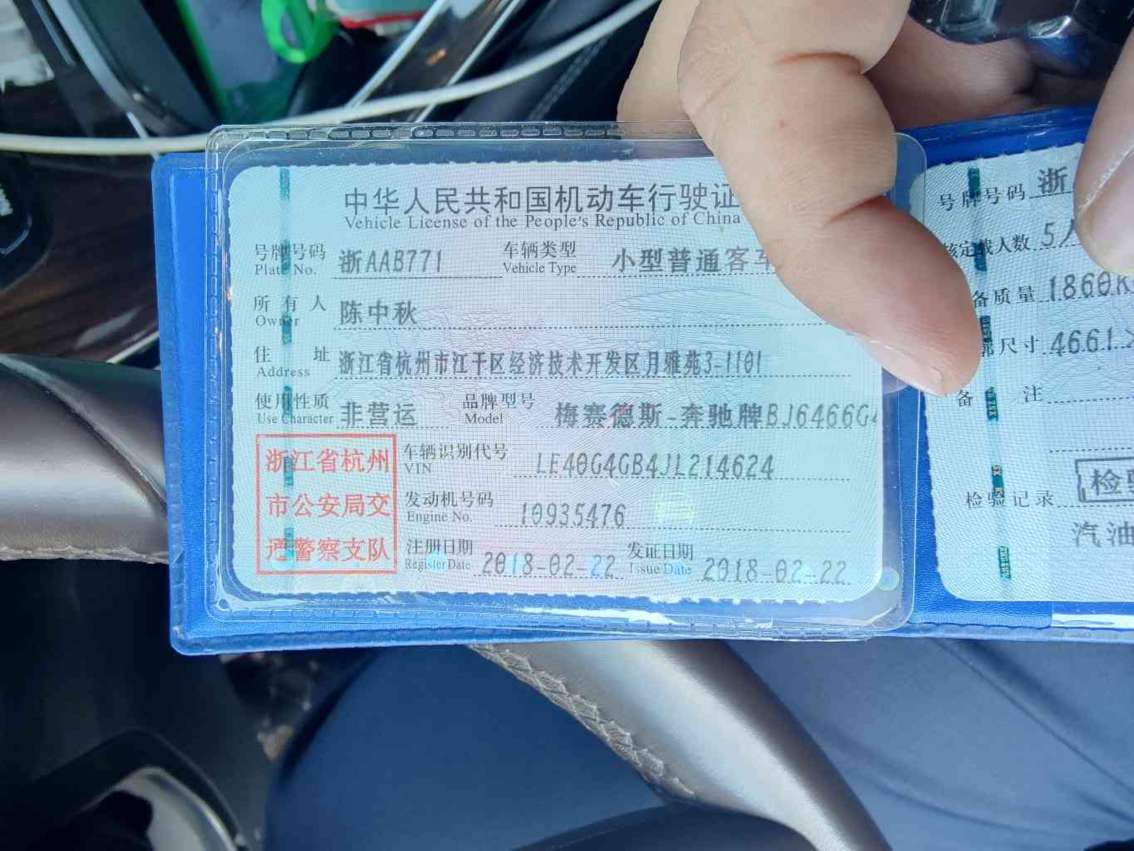 中华人民共和国机动车行驶证
Vehicle License of the People's Republic of China
号牌号码 浙AAB771 车辆类型 小型普通客车
Plate No. Vehicle Type
所有人 陈中秋
Owner
住址 浙江省杭州市江干区经济技术开发区月雅苑3-1101
Address
使用性质 非营运 品牌型号 梅赛德斯-奔驰牌BJ6466G4
Use Character Model
浙江省杭州
市公安局交
通警察支队
车辆识别代号 LE40G4GB4JL214624
VIN
发动机号码 10935476
Engine No.
注册日期 2018-02-22 发证日期 2018-02-22
Register Date Issue Date
号牌号码 浙
核定载人数 5人
备质量 1860K
廓尺寸 4661
备注
检验记录 检验
汽油